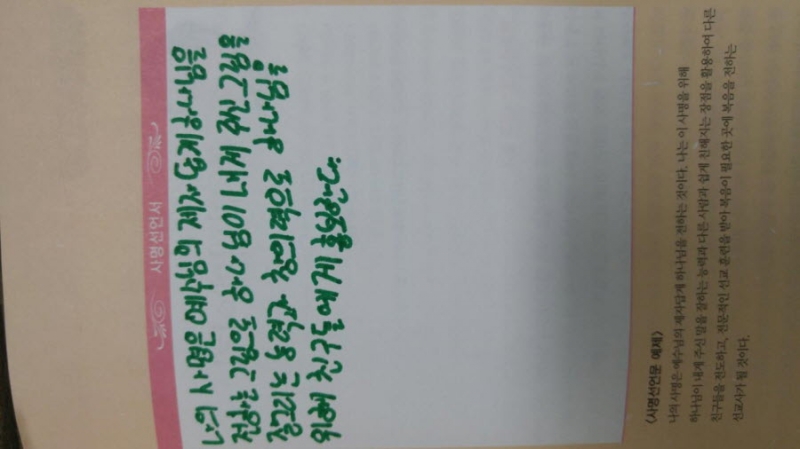 사명선언서
나의 사명은 예수님의 제자답게 하나님을
전하는 그림으로 하나님이 내게 주신 그림을
잘그리는 능력과 창의적으로 하나님을
위해 친구들에게 홍보한다.
<사명선언문 예제>
나의 사명은 예수님의 제자답게 하나님을 전하는 것이다. 나는 이 사명을 위해
하나님이 내게 주신 말을 잘하는 능력과 다른 사람과 쉽게 친해지는 장점을 활용하여 다른
친구들을 전도하고, 전문적인 선교 훈련을 받아 복음이 필요한 곳에 복음을 전하는
선교사가 될 것이다.